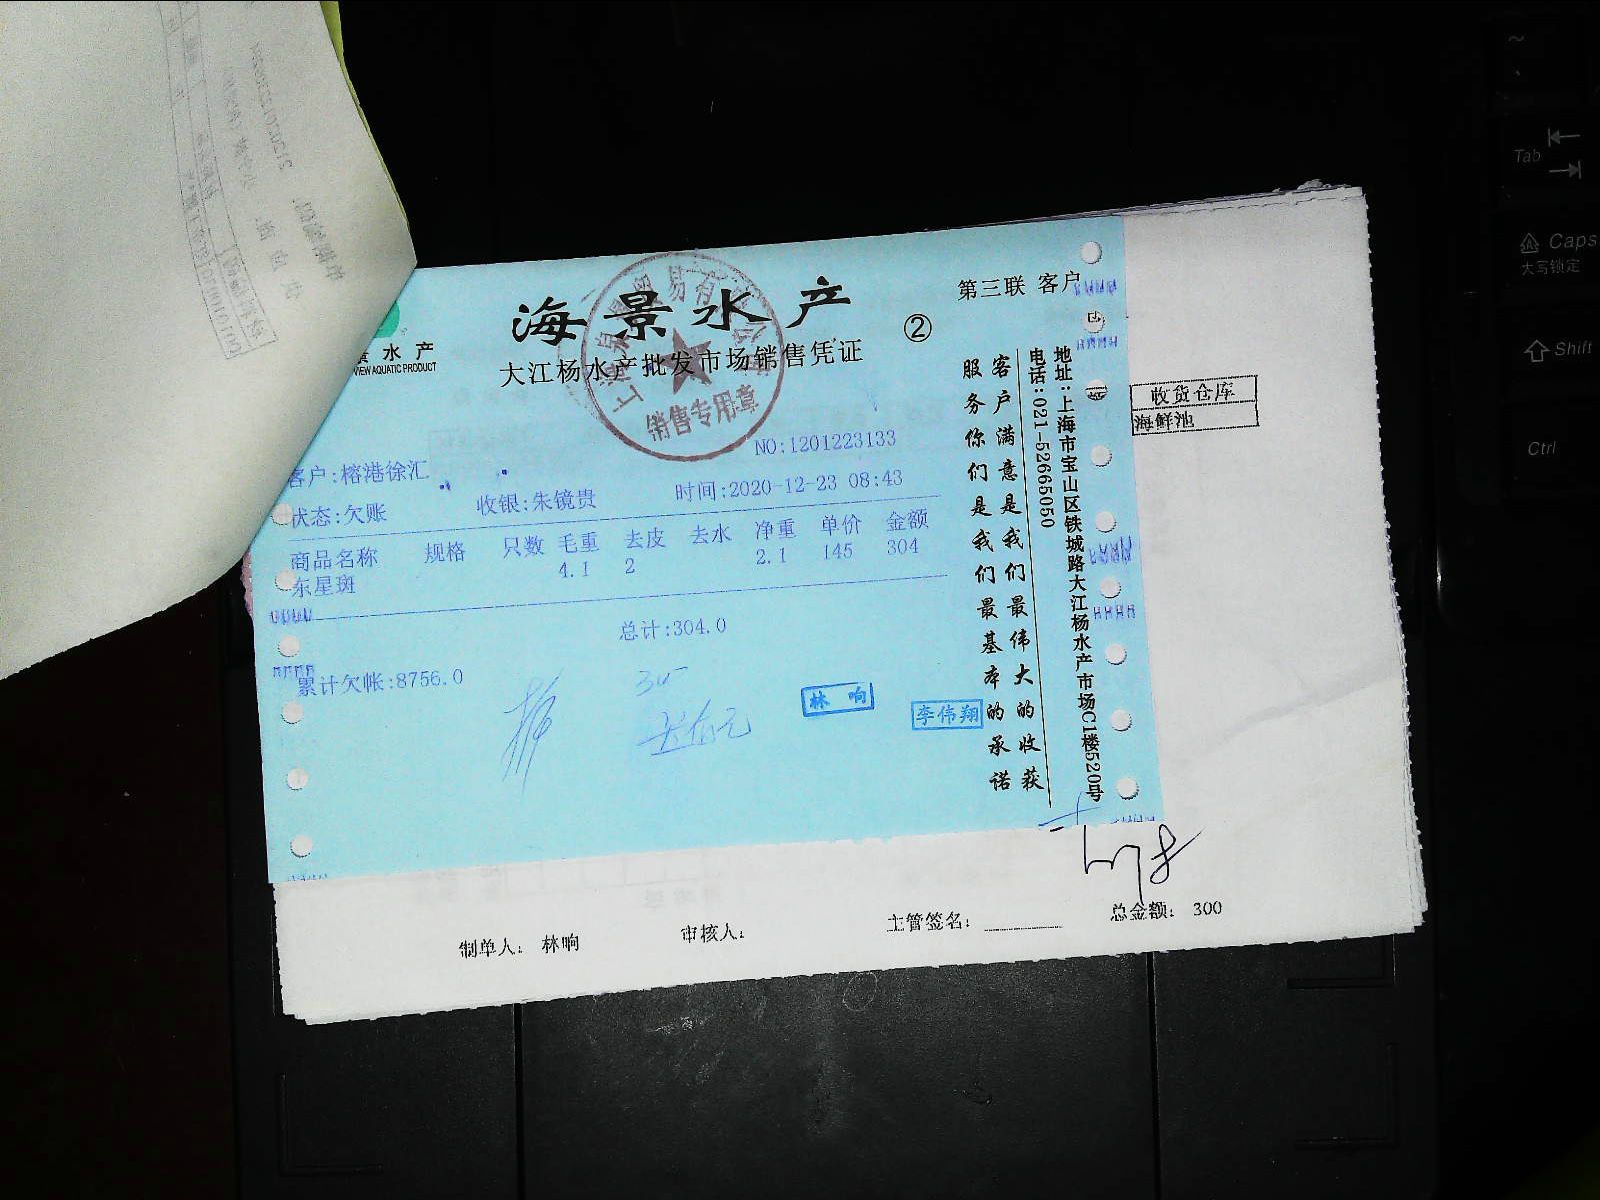 海景水产
②
第三联 客户
水产
VIEW AQUATIC PRODUCT
大江杨水产批发市场销售凭证
销售专用章
NO:1201223133
客户:榕港徐汇
状态:欠账 收银:朱镜贵 时间:2020-12-23 08:43
商品名称 规格 只数 毛重 去皮 去水 净重 单价 金额
东星斑 4.1 2 2.1 145 304
总计:304.0
累计欠帐:8756.0
林响
李伟翔
客户满意是我们最伟大的收获
服务你们是我们最基本的承诺
地址:上海市宝山区铁城路大江杨水产市场C1楼520号
电话:021-52665050
收货仓库
海鲜池
制单人: 林响 审核人: 主管签名: 总金额: 300
Tab
Caps
大写锁定
Shift
Ctrl